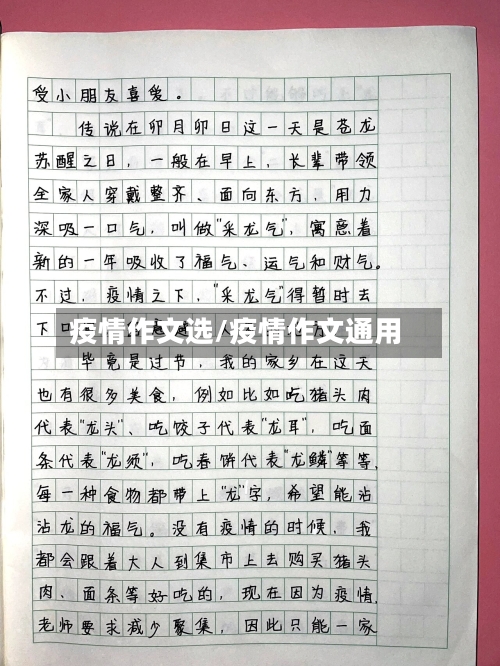 受小朋友喜爱。
传说在卯月卯日这一天是苍龙
苏醒之日，一般在早上，长辈带领
全家人穿戴整齐、面向东方，用力
深吸一口气，叫做"采龙气"，寓意着
新的一年吸收了福气、运气和财气。
不过，疫情之下，"采龙气"得暂时去
下
疫情作文选/疫情作文通用
毕竟是过节，我的家乡在这天
也有很多美食，例如比如吃猪头肉
代表"龙头"、吃饺子代表"龙耳"，吃面
条代表"龙须"，吃春饼代表"龙鳞"等等，
每一种食物都带上"龙"字，希望能沾
沾龙的福气。没有疫情的时候，我
都会跟着大人到集市上去购买猪头
肉、面条等好吃的，现在因为疫情，
老师要求减少聚集，因此只能一家